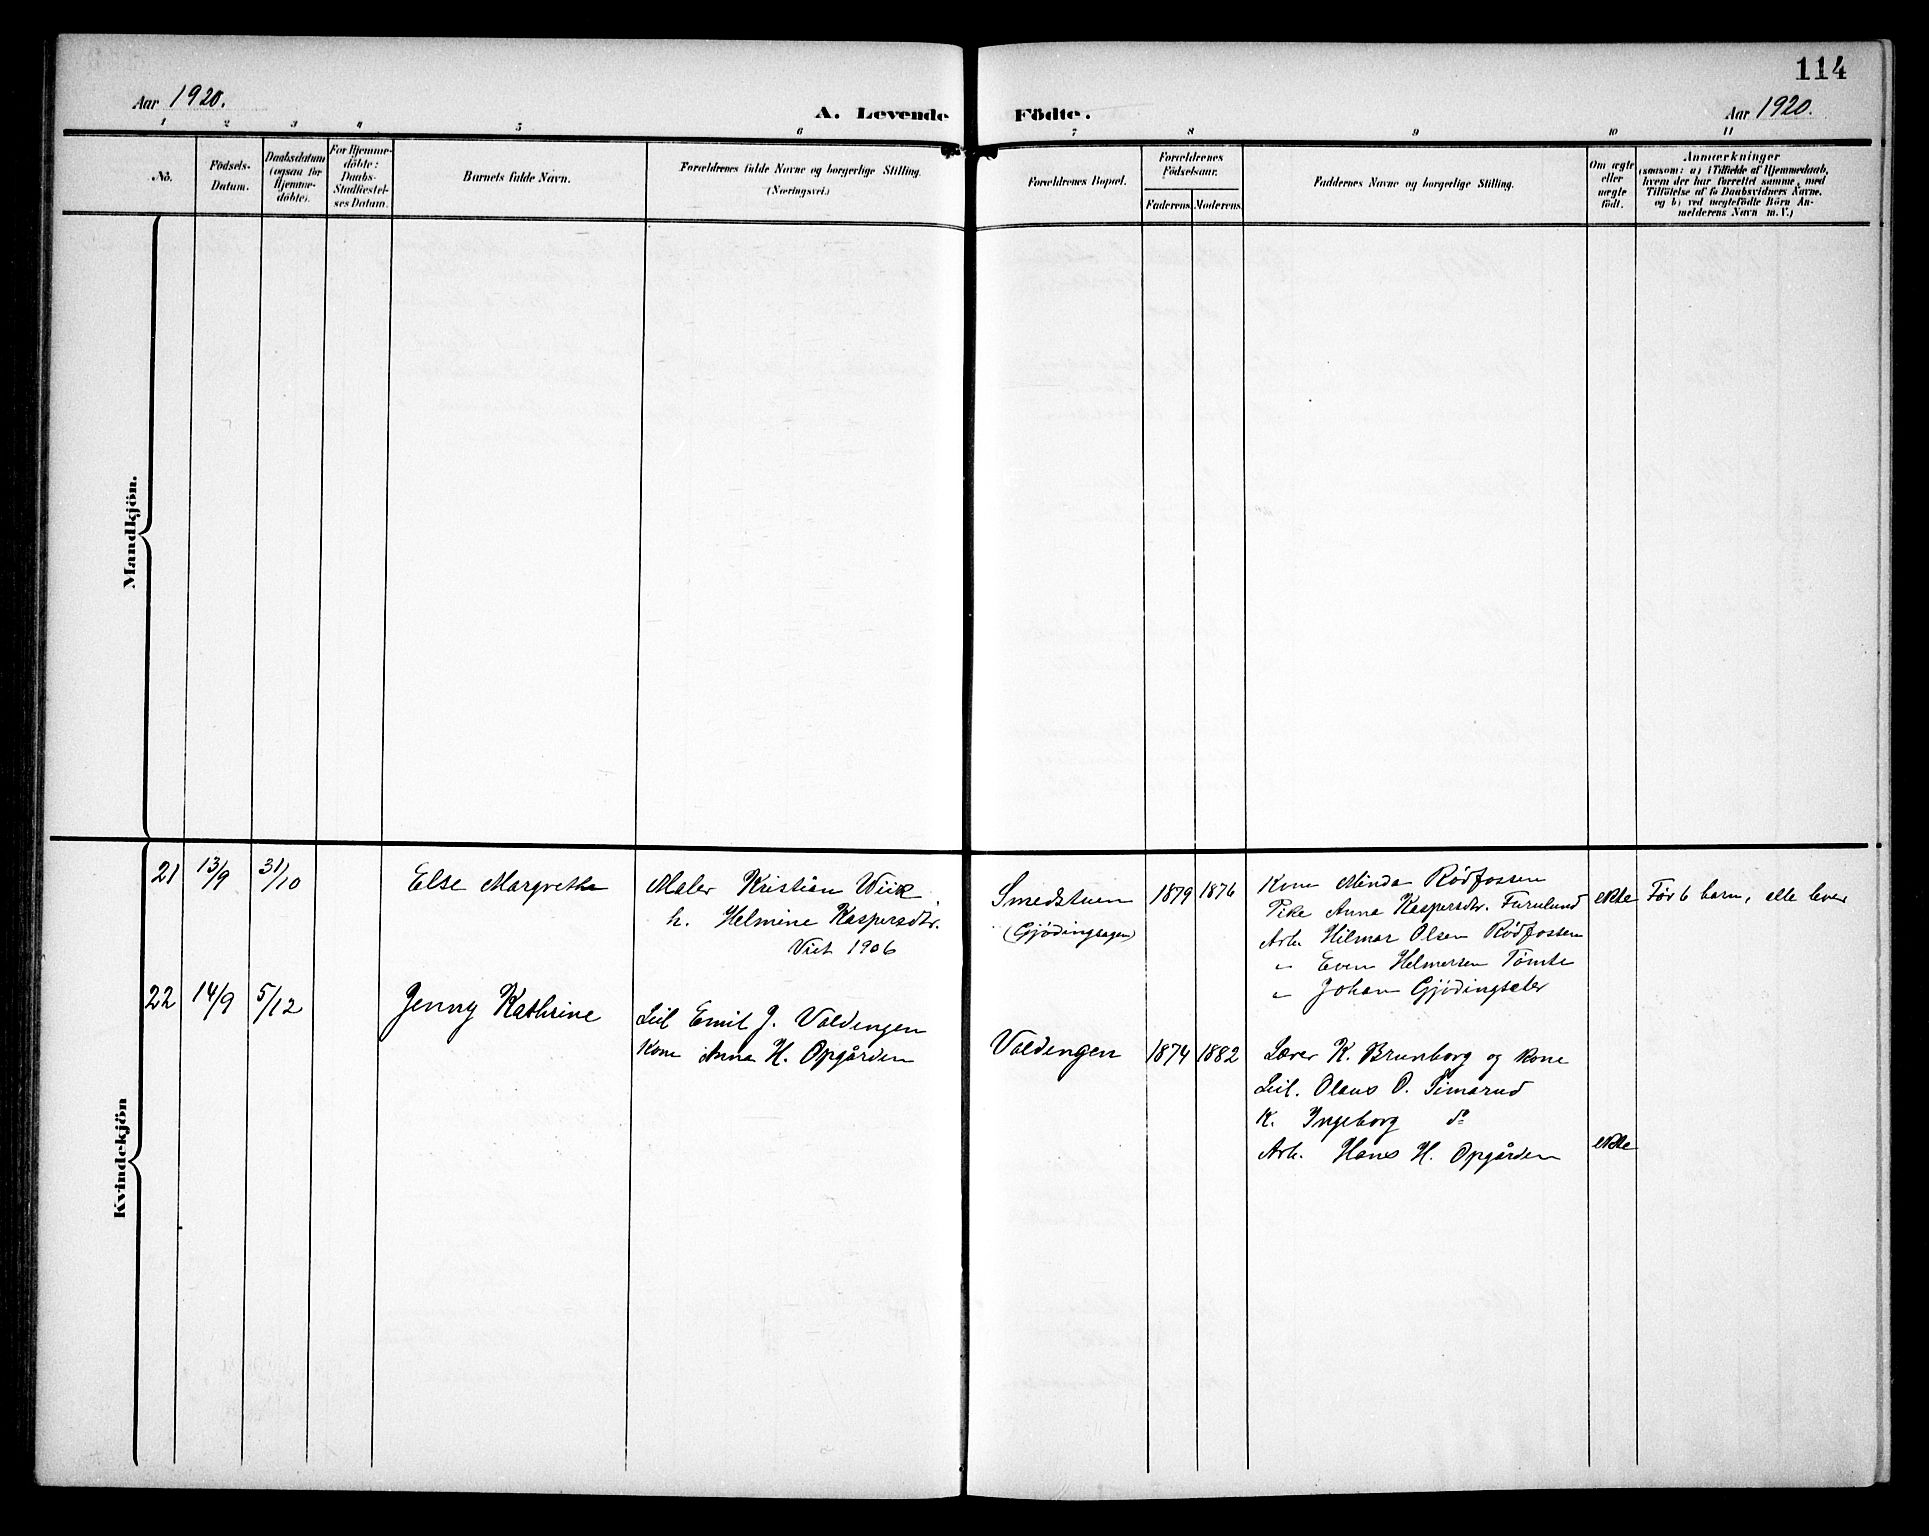 114
Aar 1920.
A. Levende Födte.
Aar 1920.
1 2 3 4 5 6 7 8 9 10 11
No.
Födsels-
Datum.
Daabsdatum
(ogsaa for
Hjemme-
döbte).
For Hjemme-
döbte:
Daabs-
Stadfæstel-
ses Datum.
Barnets fulde Navn.
Forældrenes fulde Navne og borgerlige Stilling.
(Næringsvei.)
Forældrenes Bopæl.
Forældrenes
Födselsaar.
Faderens. Moderens.
Faddernes Navne og borgerlige Stilling.
Om ægte
eller
uægte
födt.
Anmærkninger
(saasom: a) i Tilfælde af Hjemmedaab,
hvem der har forrettet samme, med
Tilföielse af to Daabsvidners Navne,
og b) ved uægtefödte Börn An-
melderens Navn m. V.)
Mandkjön.
Kvindekjön
21 13/9 31/10 Else Margrethe
Maler Kristian Wiik
h. Helmine Kaspersdtr.
Viet 1906
Smedstuen
(Gjödingsagen)
1879 1876
Kone Minda Rödfossen
Pike Anna Kaspersdtr. Furulund
Arb. Hilmar Olsen Rödfossen
" Even Helmersen Tömte
" Johan Gjödingseter
ekte
Før 6 barn, alle lever
22 14/9 5/12 Jenny Kathrine
Leil Emil J. Valdengen
Kone Anna H. Opgården
Valdengen
1874 1882
Lærer K. Brunborg og kone
Leil. Olaus O. Simarud
K. Ingeborg do
Arb. Hans H. Opgården
ekte